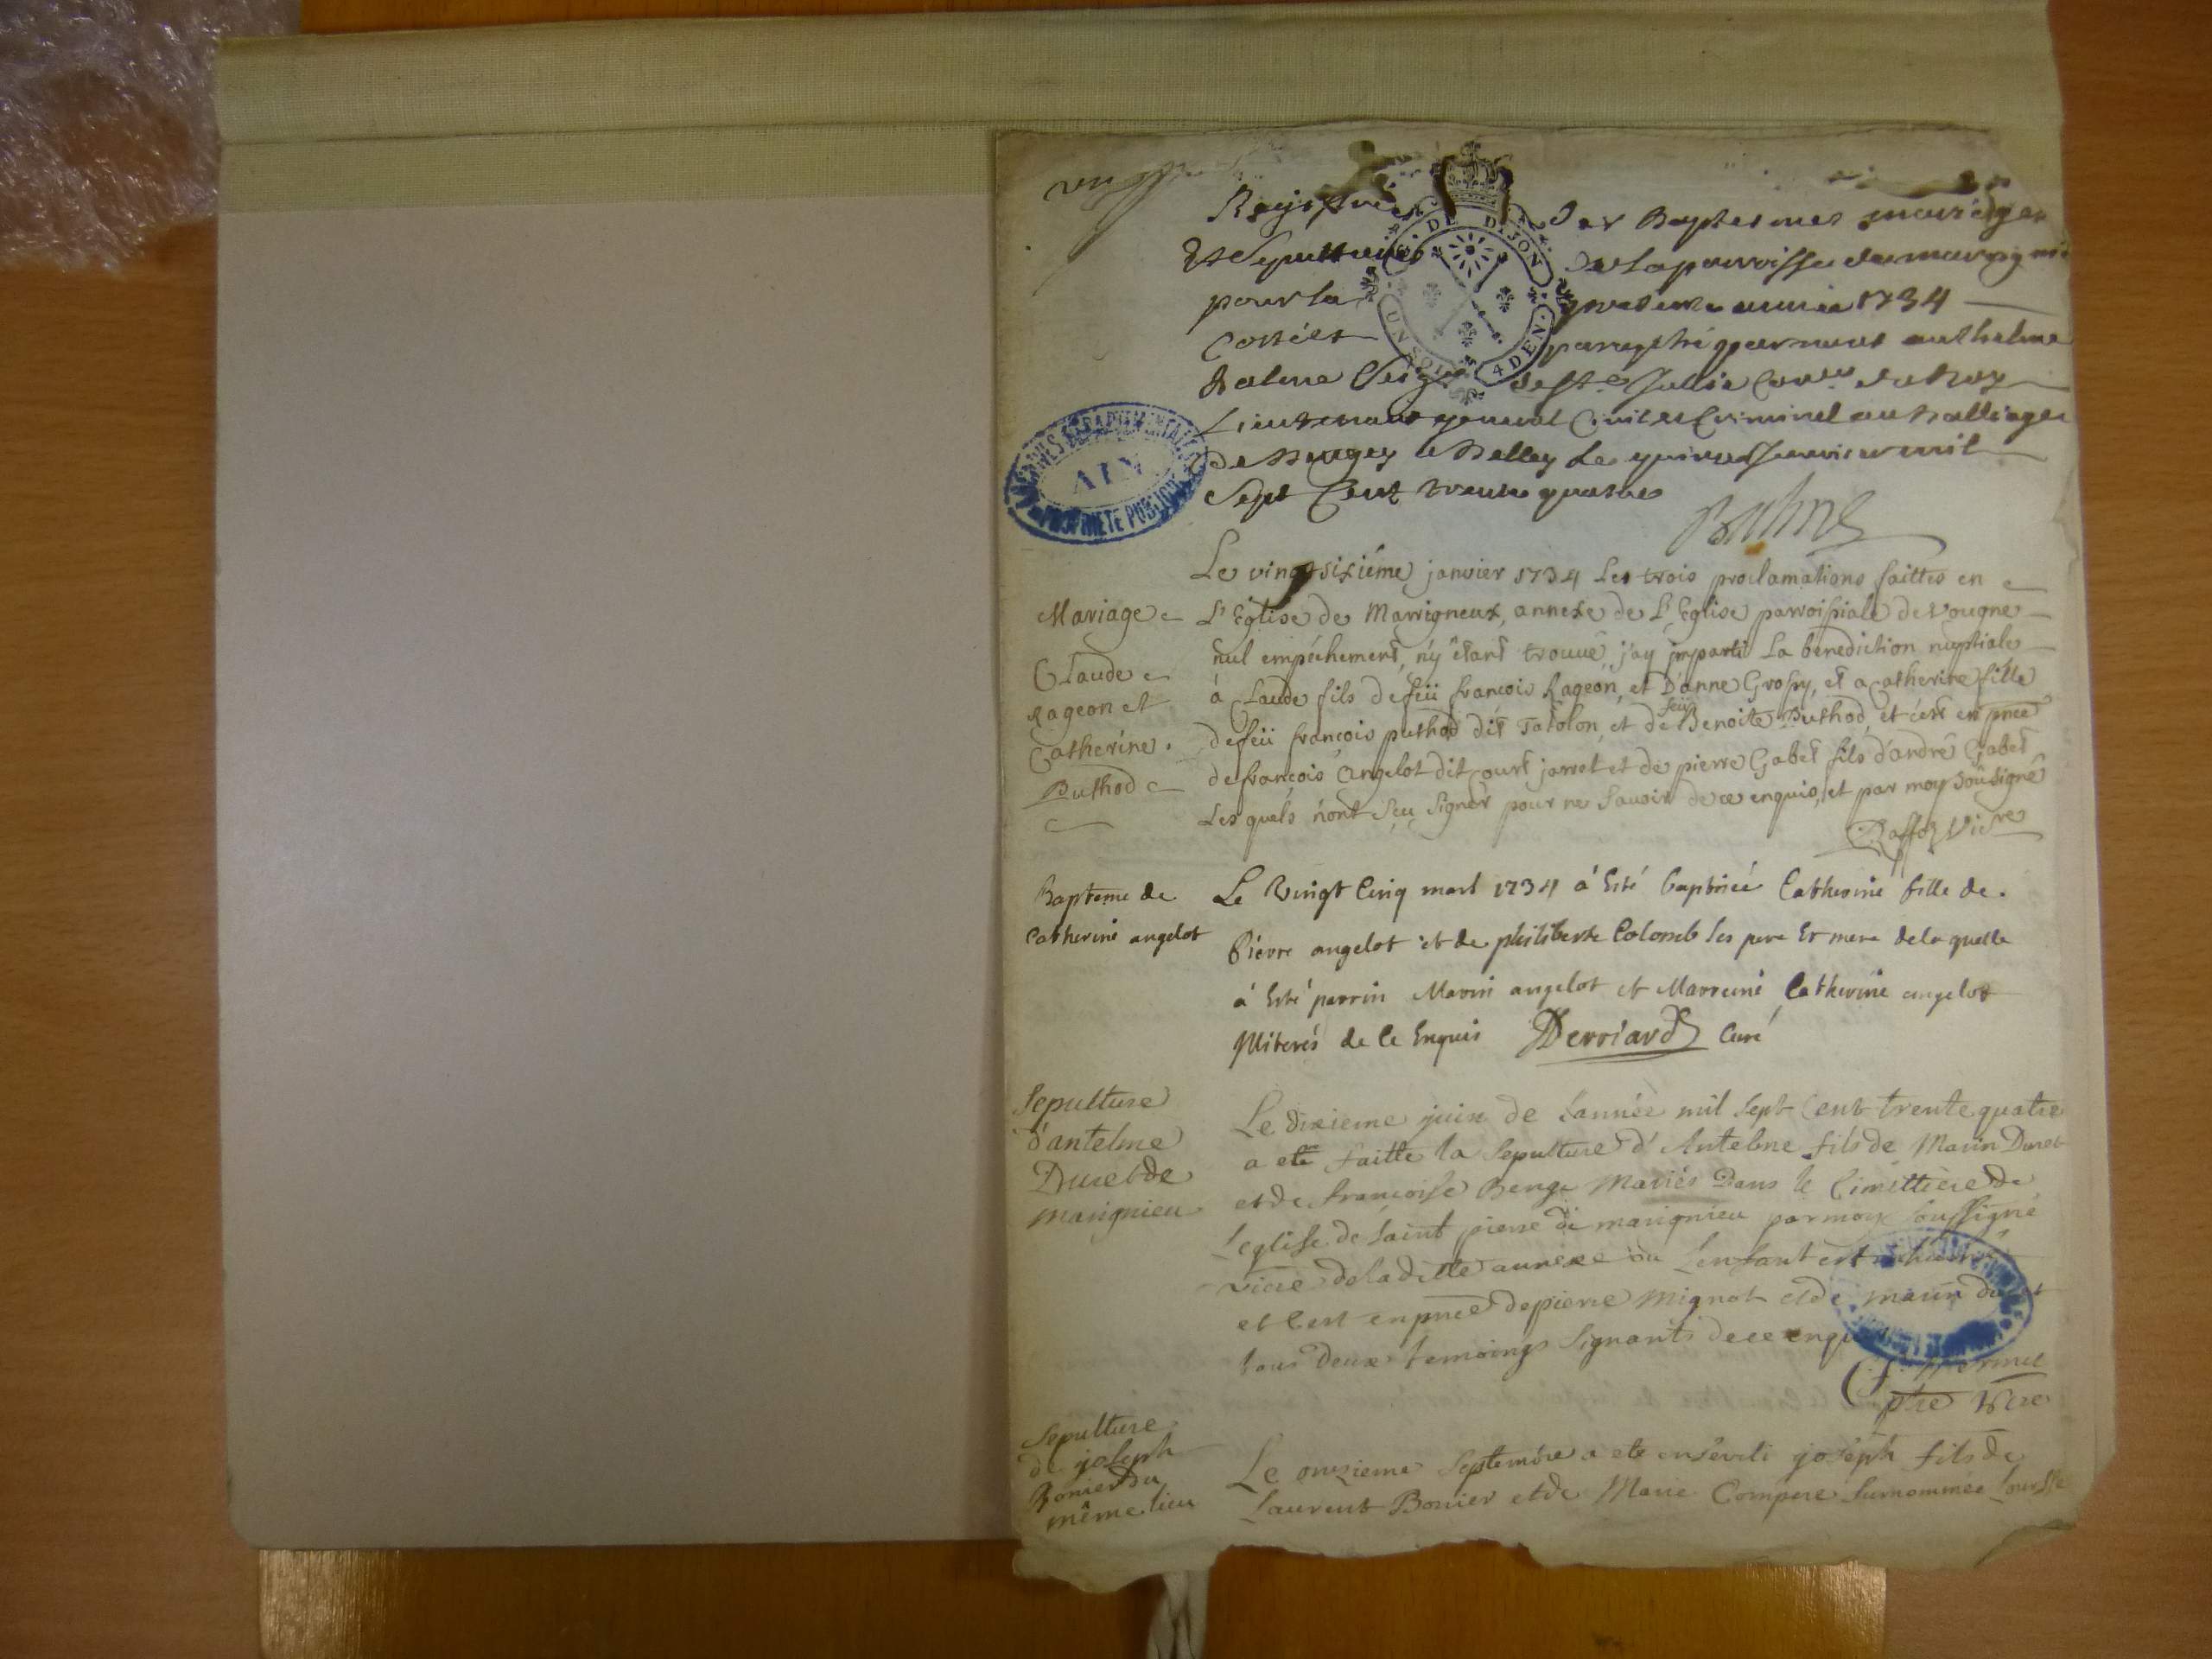 Registre Des Baptesmes mariages
Et Sepultures De la parroisse de marigni
pour la presente année 1734
Cottéet paraphé par nous anthelme
Balme Seigr de Ste Jullie Conser du Roy
Lieutenant general Civil et Criminel au Balliage
De Bugey a Belley Le quinze Janvier mil
Sept Cent trente quatre
Balme
G. DE DIJON
UN SOL 4 DEN.
ARCHIVES DÉPARTEMENTALES
AIN
PROPRIÉTÉ PUBLIQUE
Mariage
Claude
Rageon et
Catherine
Puthod
Le vingt sixiéme janvier 1734 Les trois proclamations faittes en
L'Eglise de Marrigneux, annexe de L'Eglise parroissiale de Vougne
nul empéchement, n'y êtant trouué, j'ay jmparti La benediction nuptiale
á Claude fils de feü francois Rageon, et D'anne Grosry, et a Catherine fille
de feü françois puthod dit Tatolon, et de feüe Benoite Puthod, et c'est en pnce
de françois Angelot dit Court jarret et de pierre Gabet fils d'andré Gabet
Les quels n'ont sçu signer pour ne sauoir de ce enquis, et par moy soûsigné
Raffoz Vicre
Bapteme de
Catherine angelot
Le Vingt Cinq mars 1734 á Esté baptisée Catherine fille de
Pierre angelot et de philiberte Colomb ses pere Et mere de la quelle
á Esté parrin Marin angelot et Marreine Catherine angelot
Miterés de Ce Enquis Derriard Curé
Sepulture
d'antelme
Duret de
marignieu
Le dixieme juin de L'année mil sept Cent trente quatre
a eté faitte la Sepulture d'Antelme fils de Marin Duret
et de françoise Berge Mariés Dans le Cimettiere de
L'eglise de Saint pierre de marignieu par moy soussigné
vicre de la ditte annexe ou L'enfant est
et c'est en pnce de pierre Mignot et de marin duret
tous deux temoings signants de ce enquis
ptre vicre
Sepulture
de joseph
Bonier du
même lieu
Le onzieme Septembre a eté enseveli joseph fils de
Laurent Bonier et de Marie Compere surnommée